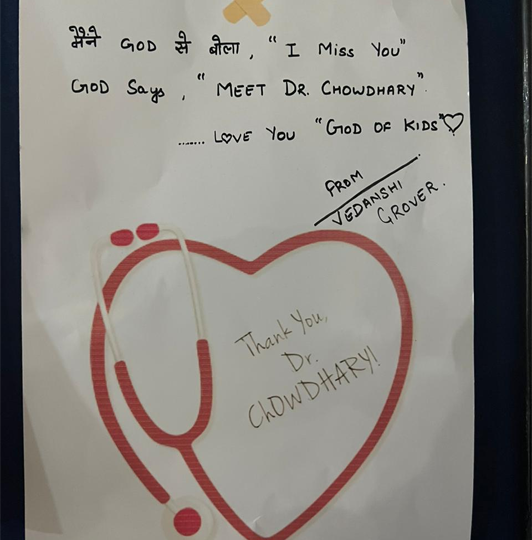 मैंने GOD से बोला, "I Miss You"
GOD Says, "MEET DR. CHOWDHARY".
....... LOVE YOU "GOD OF KIDS"♡
FROM
VEDANSHI
GROVER.
Thank You,
Dr.
CHOWDHARY!